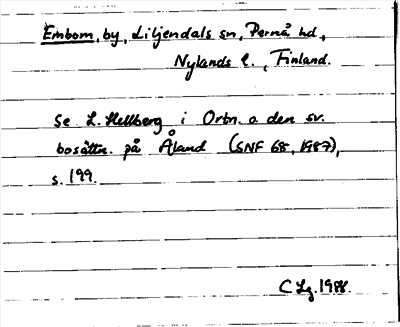 Embom, by, Liljendals sn, Pernå hd,
Nylands l., Finland.
Se L. Hellberg i Ortn. o den sv.
bosättn. på Åland (SNF 68, 1987),
s. 199.
C Lg. 1988.